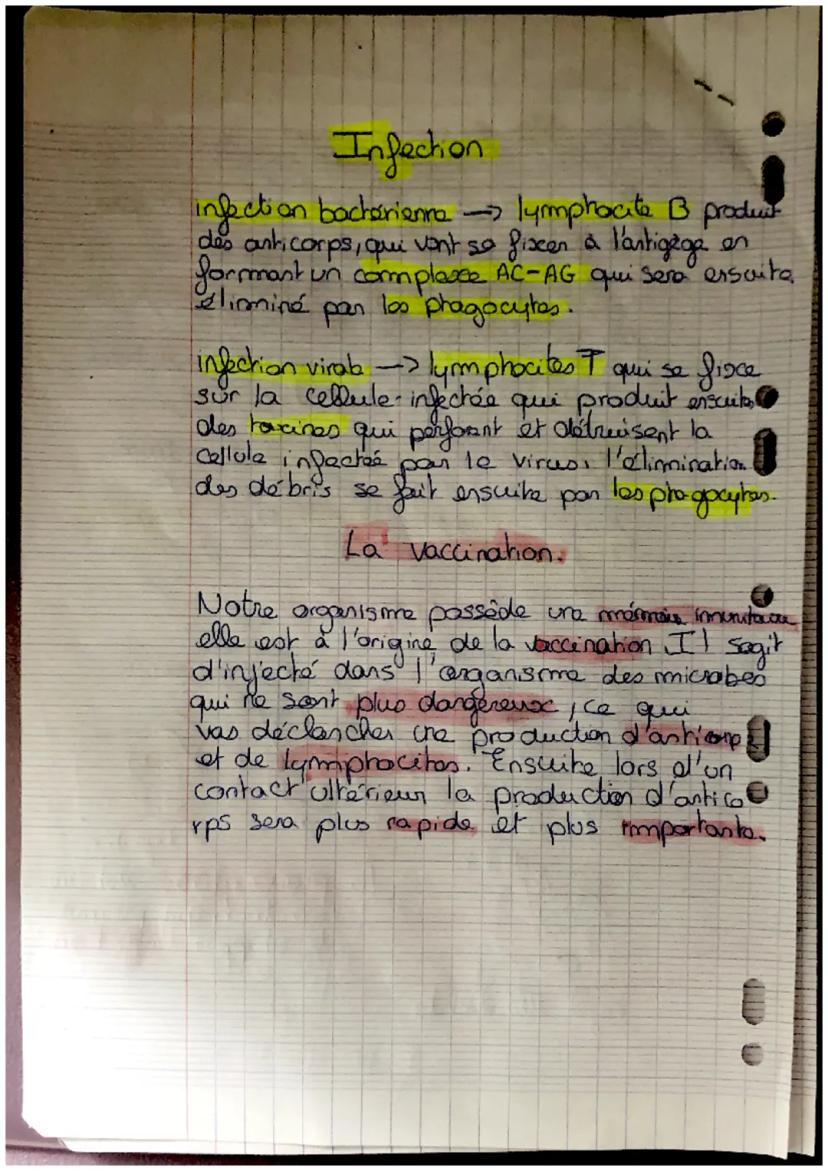 Infection
infection bactérienne → lymphocite B produit
des anticorps, qui vont se fixer à l'antigège en
formant un complexe AC-AG qui sera ensuite
éliminé par les phagocytes.
infection virale → lymphocites T qui se fixe
sur la cellule infectée qui produit ensuite
des toxines qui perforent et détruisent la
cellule infectée par le virus, l'élimination
des débris se fait ensuite par les phagocytes.
La vaccination.
Notre organisme possède une mémoire immunitaire
elle est à l'origine de la vaccination Il sagit
d'injecté dans l'organisme des microbes
qui ne sont plus dangereux, ce qui
vas déclancher une production d'anticorp
et de lymphocites. Ensuite lors d'un
contact ultérieur la production d'antico
rps sera plus rapide et plus importante.